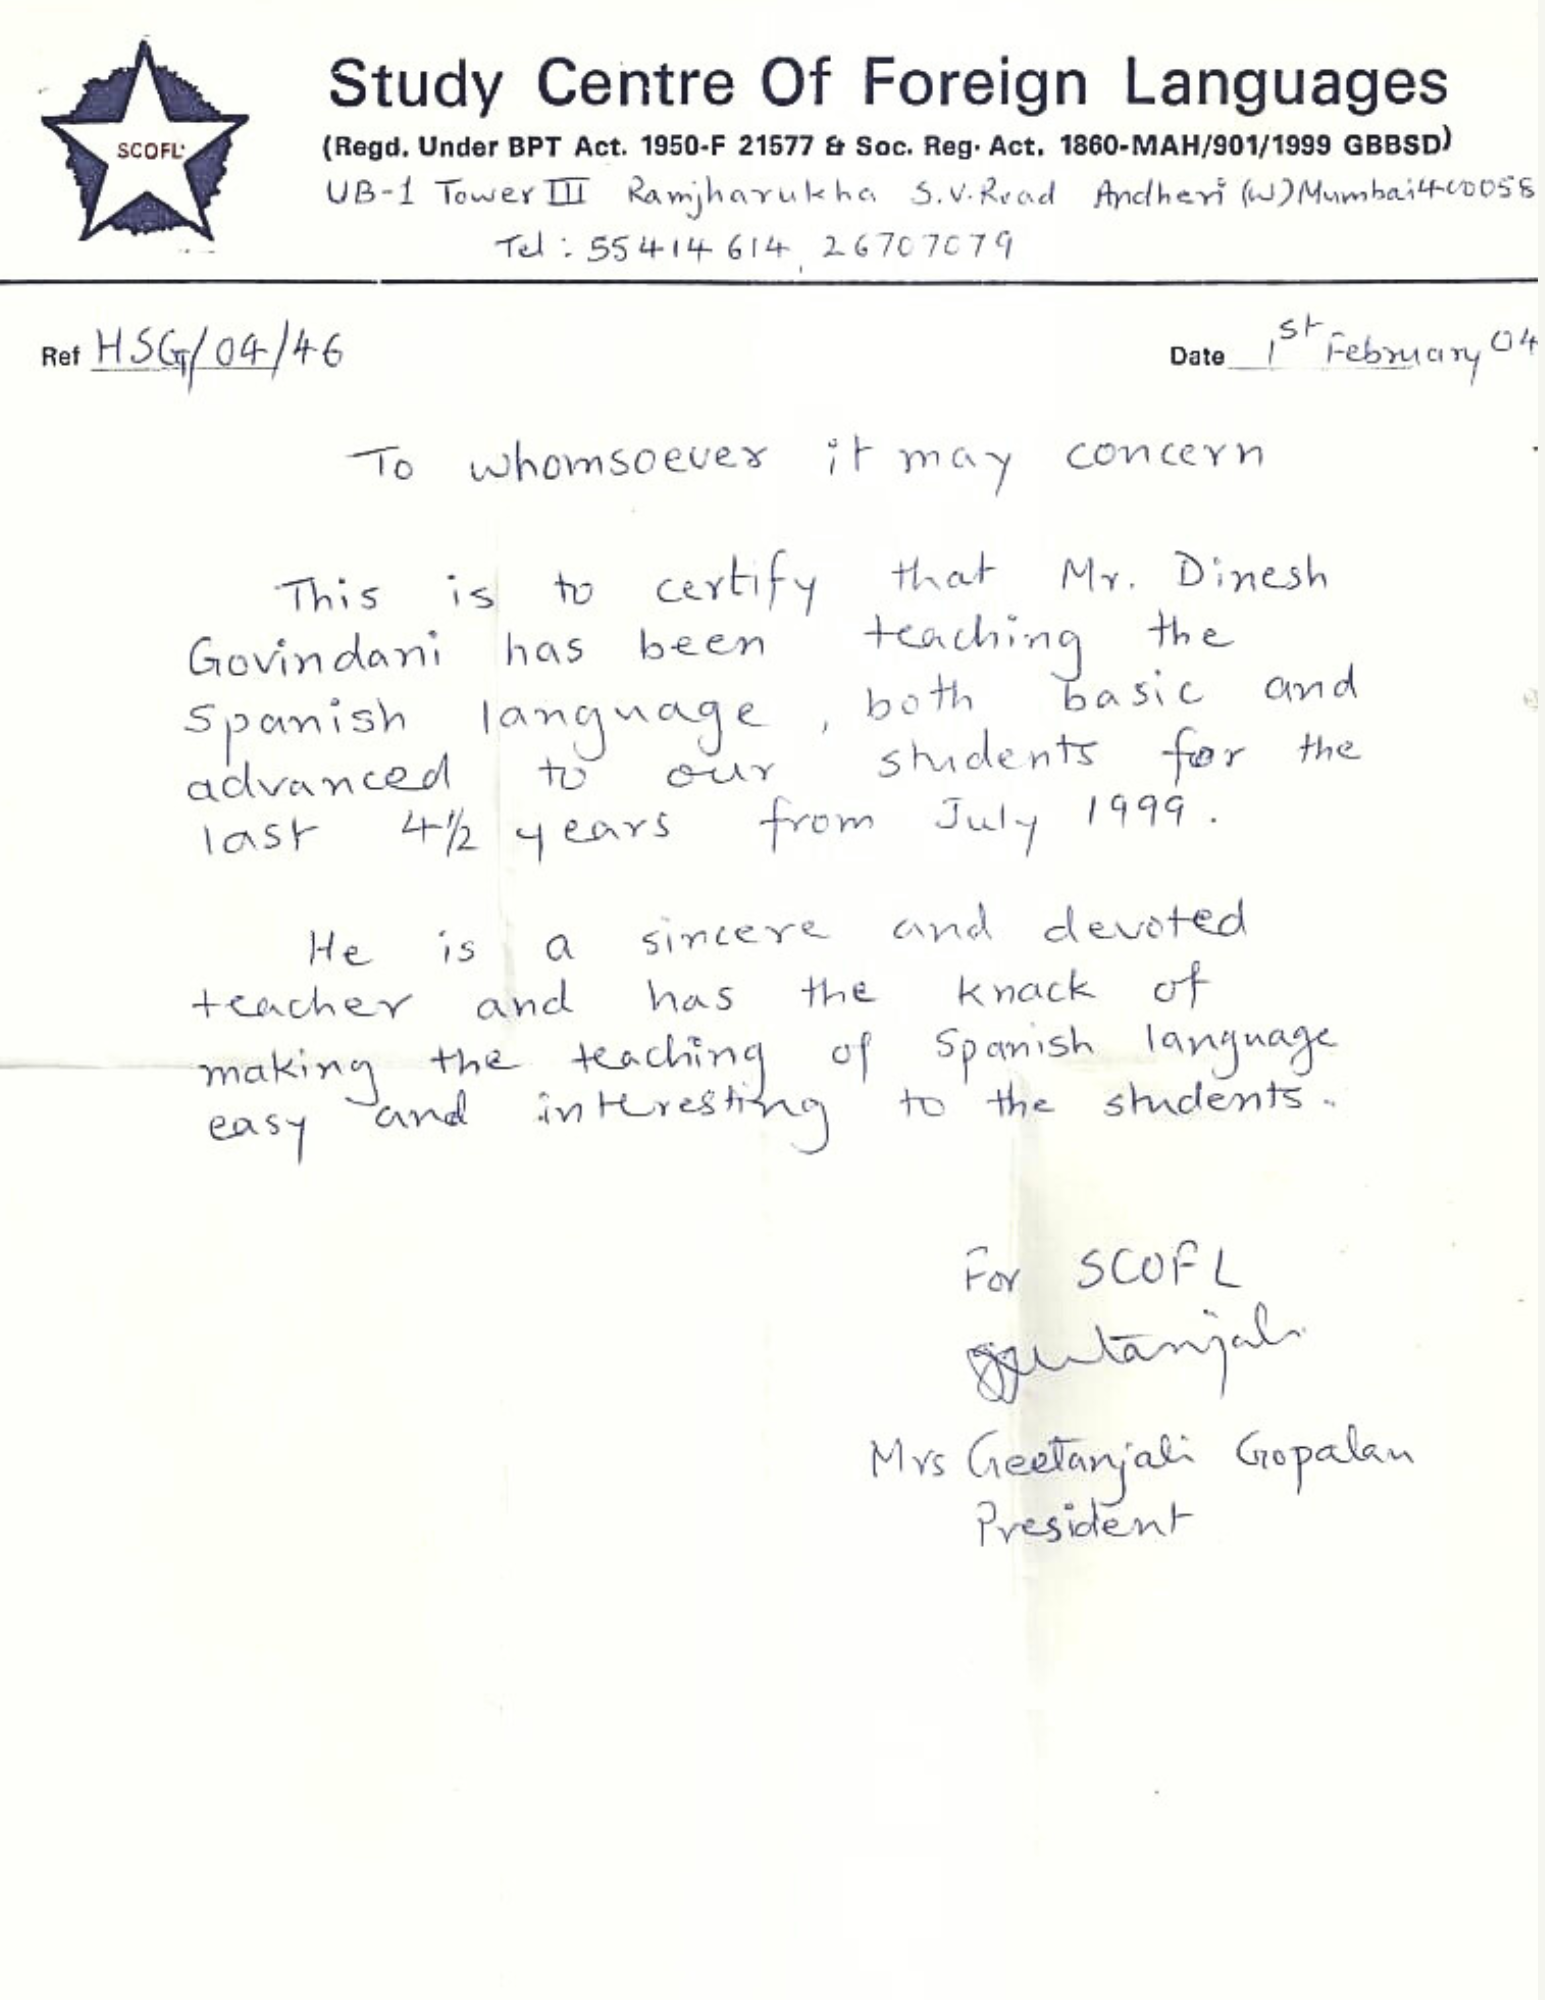 Study Centre Of Foreign Languages
SCOFL
(Regd. Under BPT Act. 1950-F 21577 & Soc. Reg. Act. 1860-MAH/901/1999 GBBSD)
UB-1 Tower III Ramjharukha S.V. Road Andheri (W) Mumbai 400058
Tel : 55414614, 26707079
Ref HSG/04/46 Date 1st February 04
To whomsoever it may concern
This is to certify that Mr. Dinesh
Govindani has been teaching the
Spanish language, both basic and
advanced to our students for the
last 4½ years from July 1999.
He is a sincere and devoted
teacher and has the knack of
making the teaching of Spanish language
easy and interesting to the students.
For SCOFL
Geetanjali
Mrs Geetanjali Gopalan
President